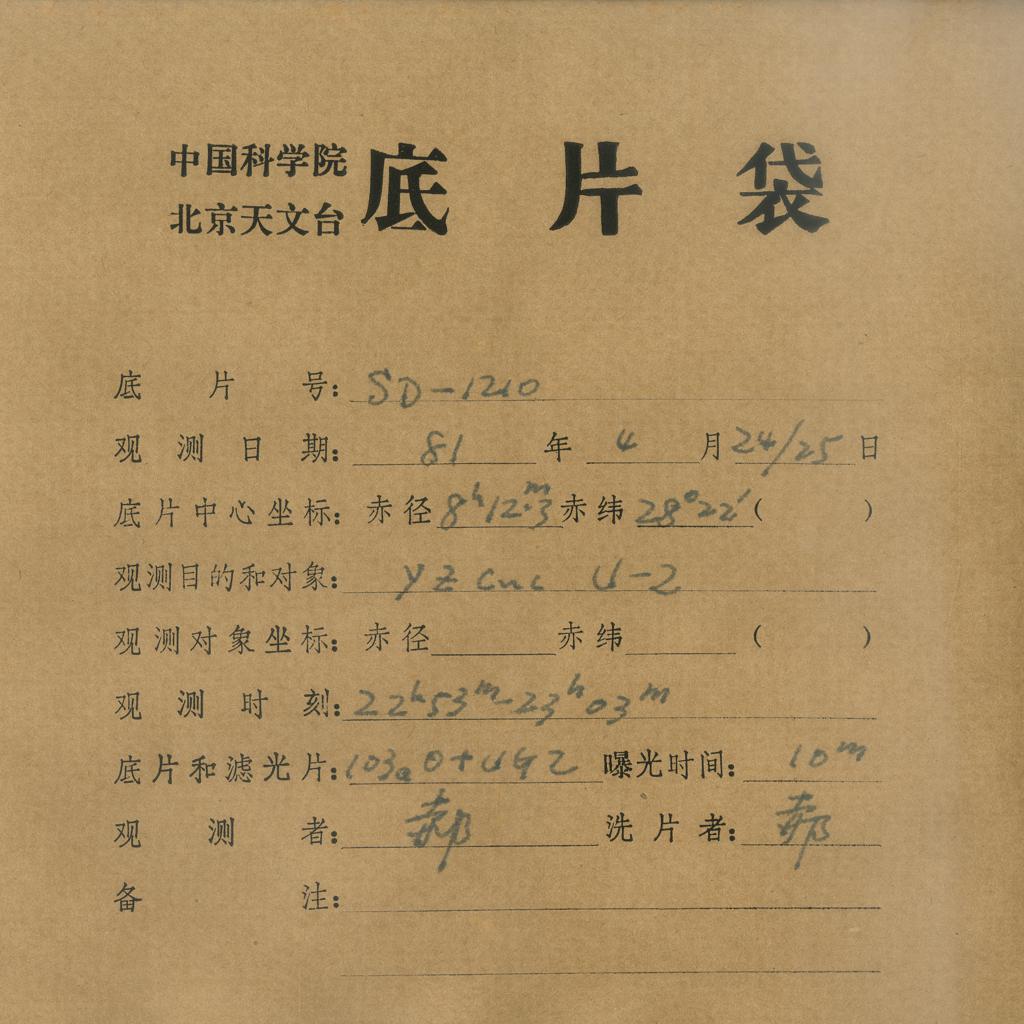 中国科学院
北京天文台
底片袋
底片号：SD-1210
观测日期：81年4月24/25日
底片中心坐标：赤径8ʰ12ᵐ.3赤纬28°22′(  )
观测目的和对象：YZ Cnc U-2
观测对象坐标：赤径 赤纬 (  )
观测时刻：22ʰ53ᵐ-23ʰ03ᵐ
底片和滤光片：103aO+UG2 曝光时间：10ᵐ
观测者：郝 洗片者：郝
备注：